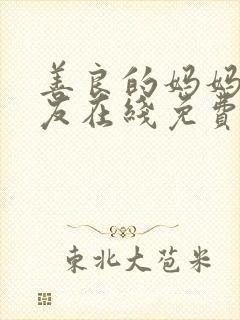 善良的妈妈
友在綫免費
東北大苞米